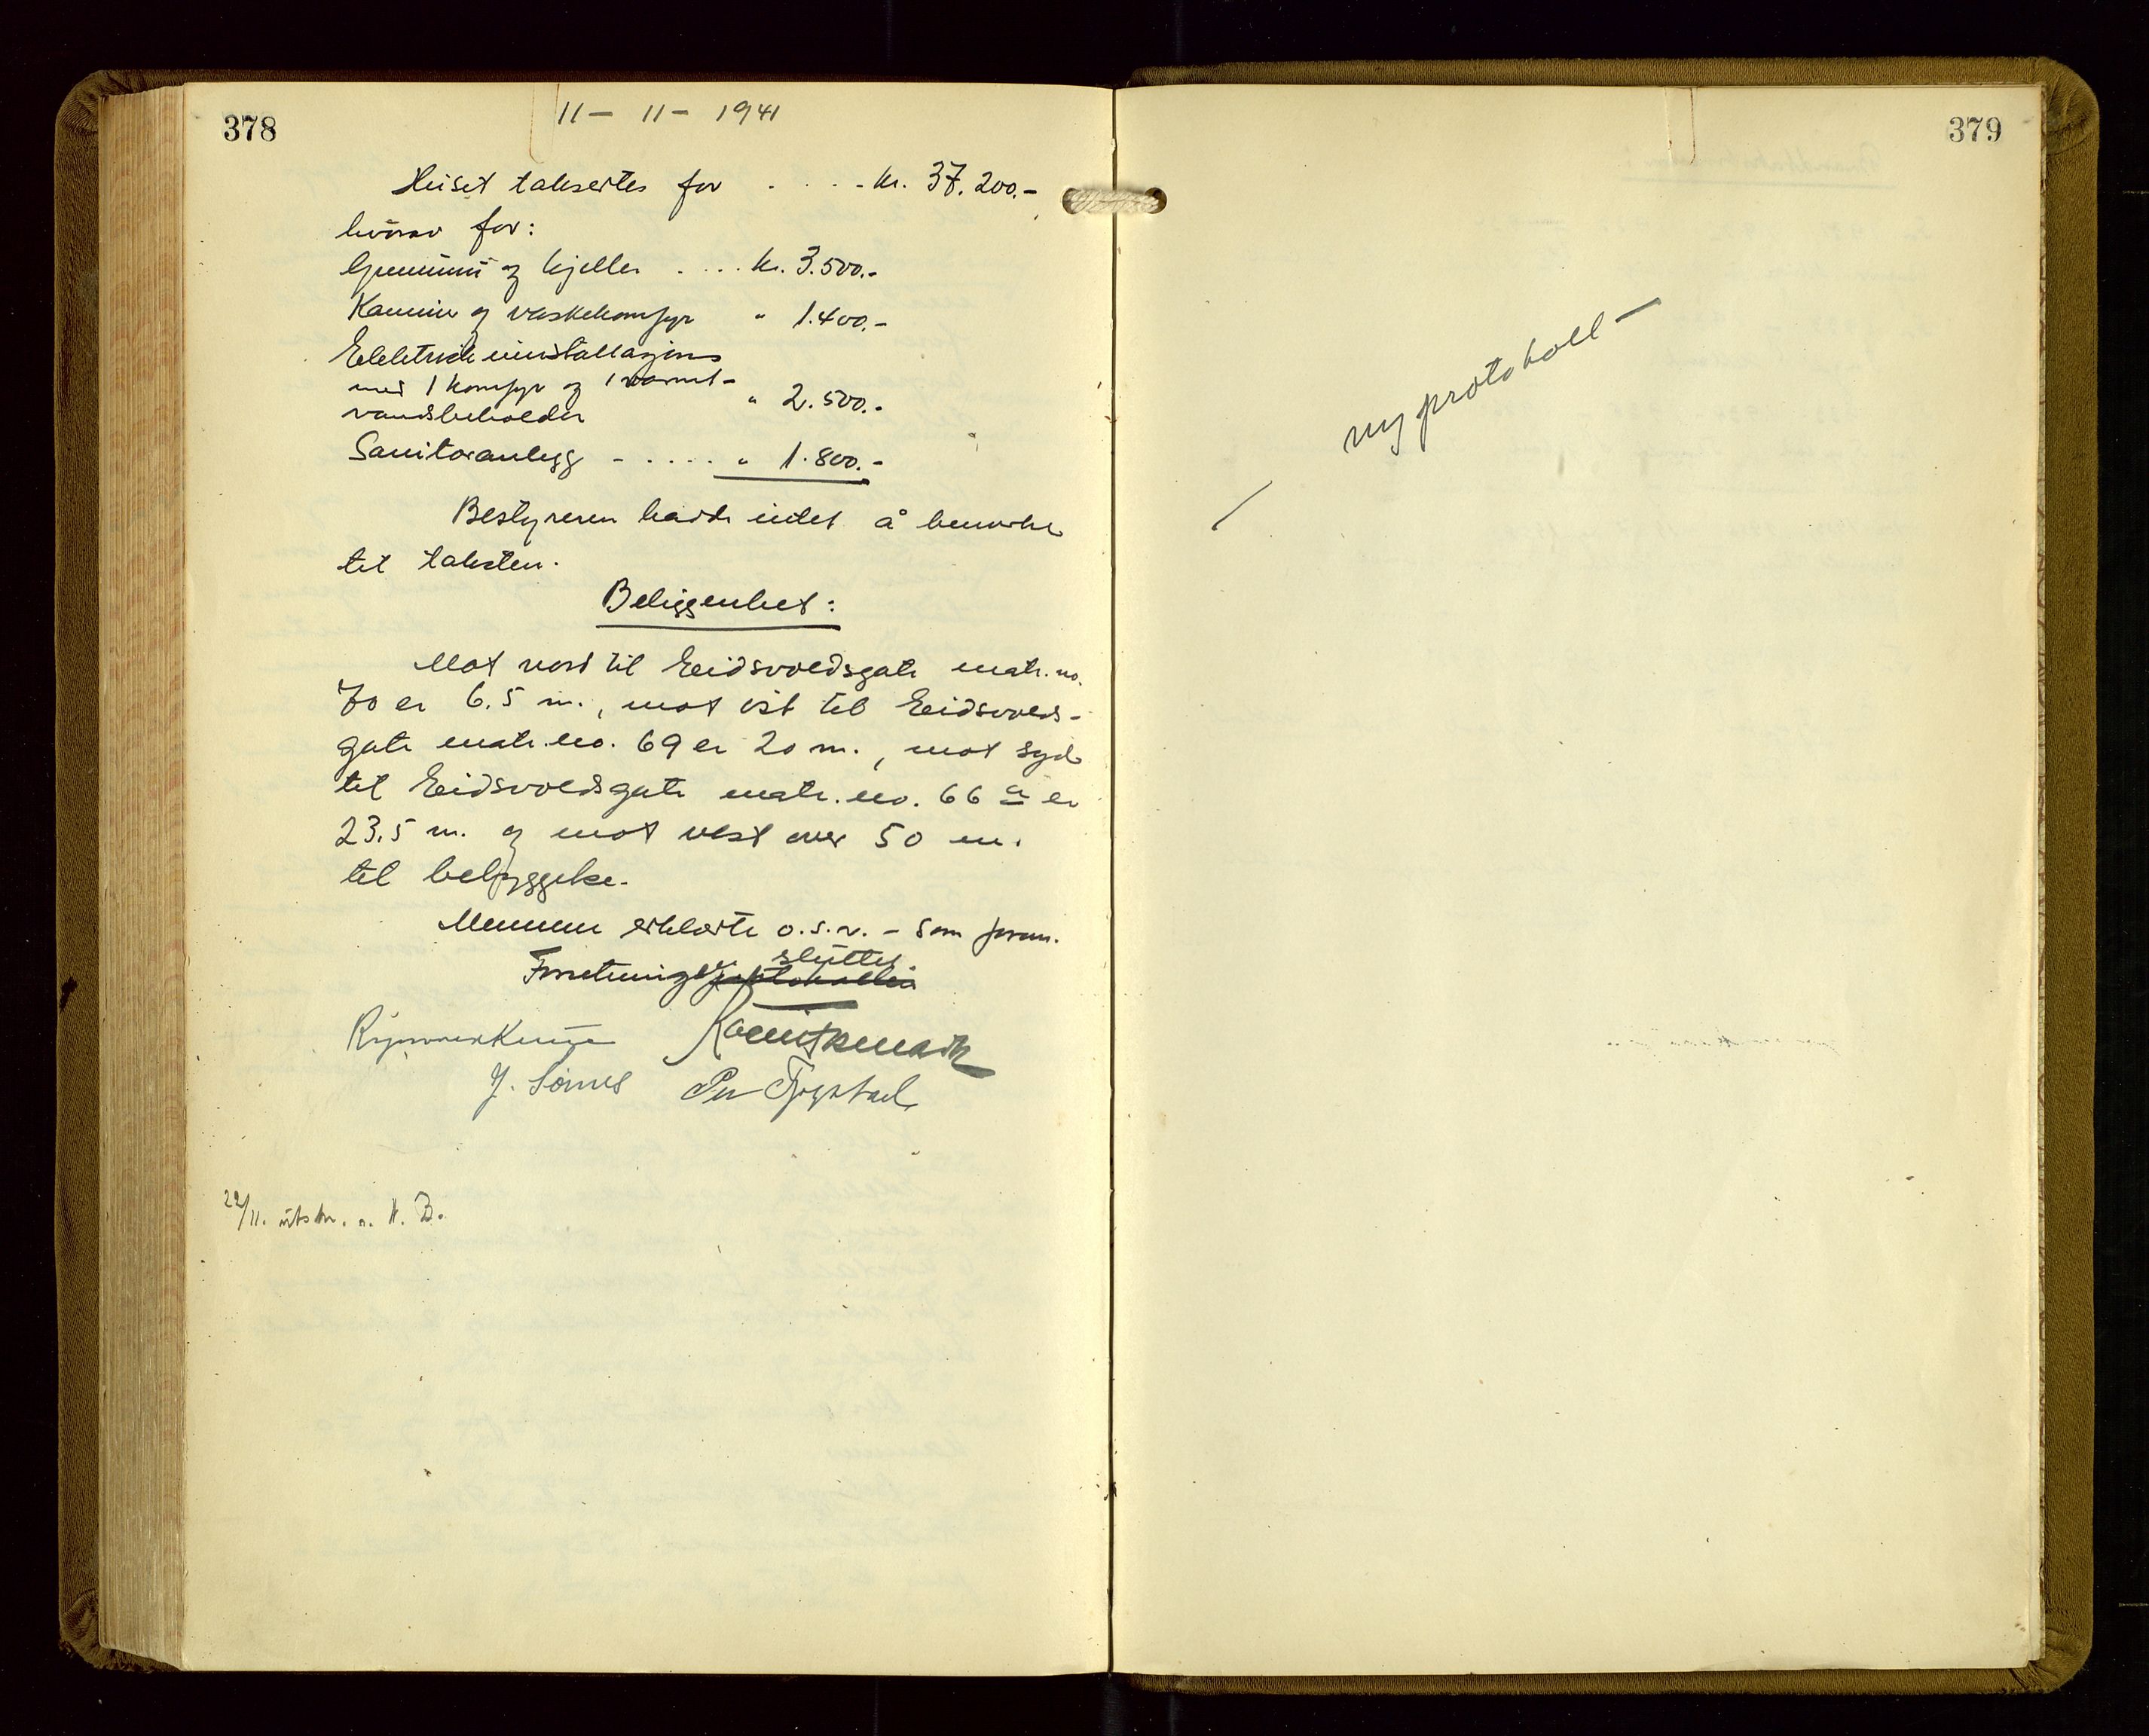 378
11 - 11 - 1941
Huset takseertes for . . . . kr. 37.200.-
hvorav for:
Grunnmur og kjeller . . . . kr. 3.500.-
Kamin og vaskekomfyr " 1.400.-
Elektrisk installasjon
med 1 komfyr og 1 varmt-
vandsbeholder " 2.500.-
Sanitæranlegg - . . . . " 1.800.-
Bestyreren hadde intet å bemerke
til taksten.
Beliggenhet:
Mot nord til Eidsvoldsgate matr. no.
70 er 6.5 m., mot øst til Eidsvolds-
gate matr. no. 69 er 20 m., mot syd
til Eidsvoldsgate matr. no. 66 a er
23.5 m. og mot vest over 50 m.
til bebyggelse.
Mennene erklærte o.s.v. - som foran.
Forretningen sluttet.
J. Sømes Per
22/11. utskr. H. B.
379
ny protokoll -